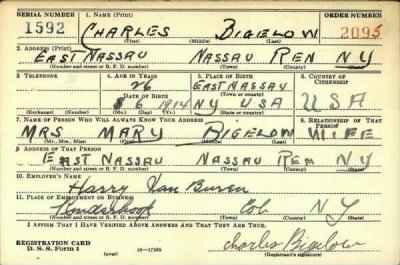 SERIAL NUMBER 1. NAME (Print) ORDER NUMBER
1592 CHARLES BIGELOW 2095
(First) (Middle) (Last)
2. ADDRESS (Print)
EAST NASSAU NASSAU REN NY
(Number and street or R. F. D. number) (Town) (County) (State)
3. TELEPHONE 4. AGE IN YEARS 5. PLACE OF BIRTH 6. COUNTRY OF CITIZENSHIP
26 EAST NASSAU
DATE OF BIRTH (Town or county)
8 6 1914 NY USA USA
(Exchange) (Number) (Mo.) (Day) (Yr.) (State or country)
7. NAME OF PERSON WHO WILL ALWAYS KNOW YOUR ADDRESS 8. RELATIONSHIP OF THAT PERSON
MRS MARY BIGELOW WIFE
(Mr., Mrs., Miss) (First) (Middle) (Last)
9. ADDRESS OF THAT PERSON
EAST NASSAU NASSAU REM NY
(Number and street or R. F. D. number) (Town) (County) (State)
10. EMPLOYER'S NAME
Harry Van Buren
11. PLACE OF EMPLOYMENT OR BUSINESS
Kinderhook Col NY
(Number and street or R. F. D. number) (Town) (County) (State)
I AFFIRM THAT I HAVE VERIFIED ABOVE ANSWERS AND THAT THEY ARE TRUE.
REGISTRATION CARD
D. S. S. Form 1 (over) 16-17105 Charles Bigelow
(Registrant's signature)